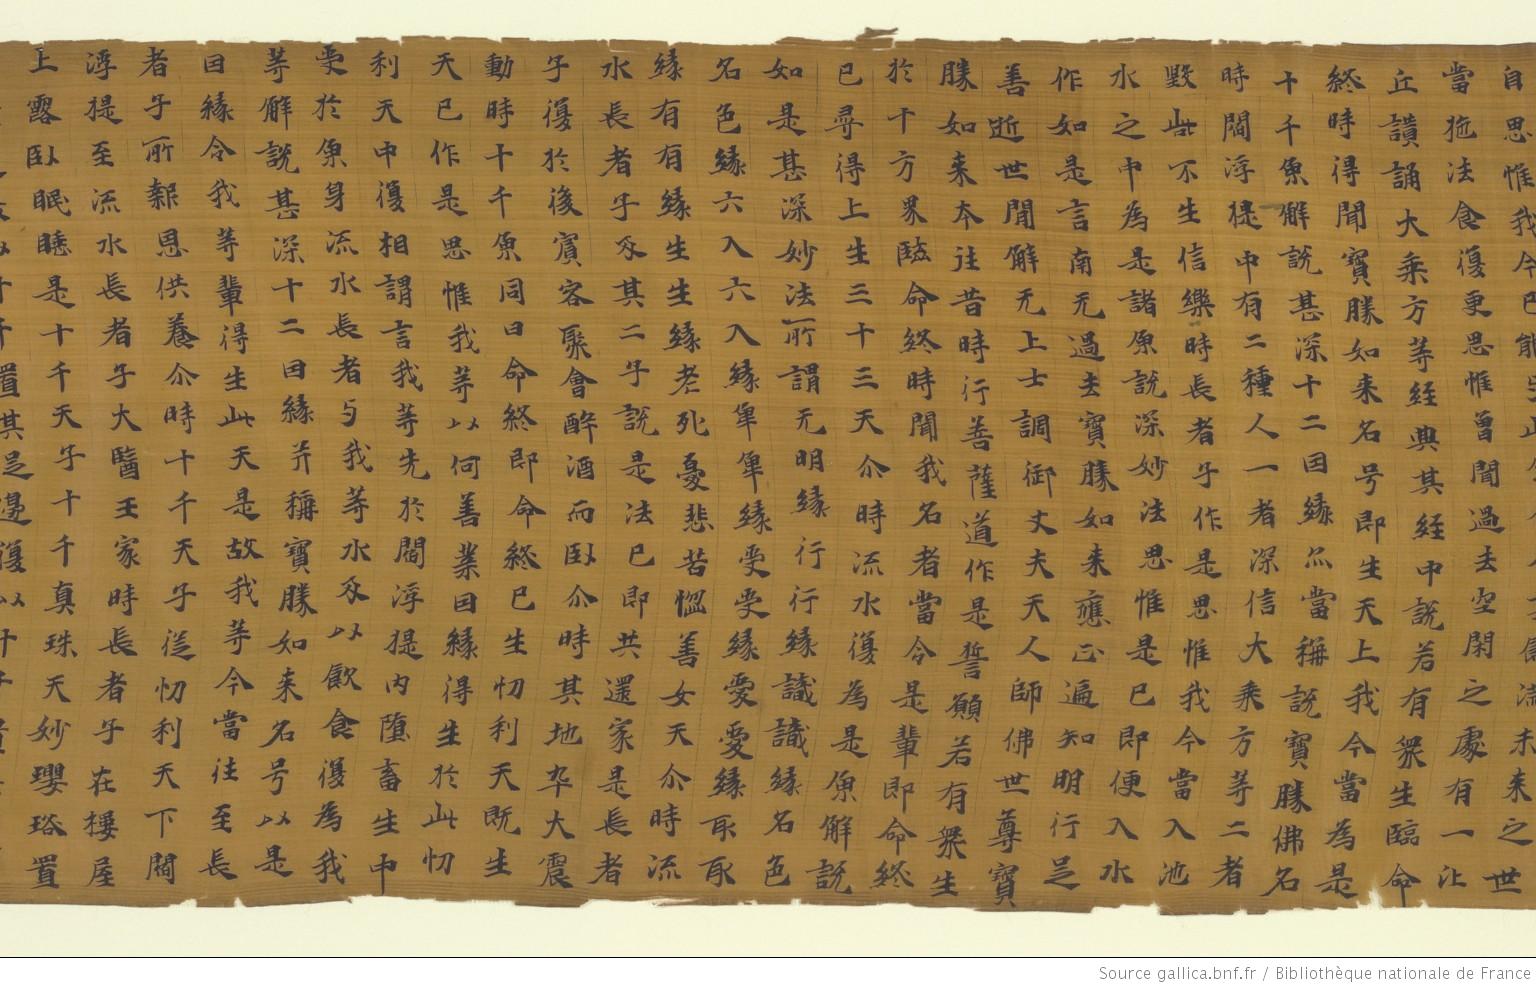 自思惟我今已能与此未来之世
當施法食復更思惟曽聞過去空閑之處有一比
丘讀誦大乘方等経典其経中說若有衆生臨命
終時得聞寶勝如来名号即生天上我今當為是
十千魚解說甚深十二因緣亦當稱說寶勝佛名
時閻浮提中有二種人一者深信大乘方等二者
毀呰不生信樂時長者子作是思惟我今當入池
水之中為是諸魚說深妙法思惟是已即便入水
作如是言南无過去寶勝如来應正遍知明行足
善逝世間解无上士調御丈夫天人師佛世尊寶
勝如来本往昔時行菩薩道作是誓願若有衆生
於十方界臨命終時聞我名者當令是輩即命終
已尋得上生三十三天尒時流水復為是魚解說
如是甚深妙法所謂无明緣行行緣識識緣名色
名色緣六入六入緣觸觸緣受受緣愛愛緣取取
緣有有緣生生緣老死憂悲苦惱善女天尒時流
水長者子及其二子說是法已即共還家是長者
子復於後賓客聚會醉酒而臥尒時其地卒大震
動時十千魚同日命終即命終已生忉利天既生
天已作是思惟我等以何善業因緣得生於此忉
利天中復相謂言我等先於閻浮提內墮畜生中
受於魚身流水長者与我等水及以飲食復為我
等解說甚深十二因緣并稱寶勝如来名号以是
因緣令我等輩得生此天是故我等今當往至長
者子所報恩供養尒時十千天子從忉利天下閻
浮提至流水長者子大醫王家時長者子在樓屋
上露臥眠睡是十千天子十千真珠天妙瓔珞置
置其足邊復以十千
Source gallica.bnf.fr / Bibliothèque nationale de France